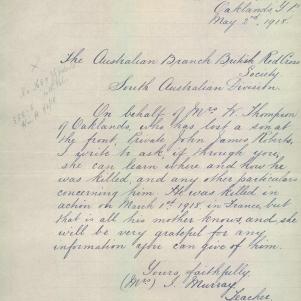 Oaklands, Y.P.
May 2nd, 1918.
The Australian Branch British Red Cross
Society.
South Australian Division.
On behalf of Mrs. W. Thompson
of Oaklands, who has lost a son at
the front, Private John James Roberts,
I write to ask, if through you,
she can learn where and how he
was killed, and any other particulars
concerning him. He was killed in
action on March 1st, 1918, in France, but
that is all his mother knows, and she
will be very grateful for any
information you can give of him.
Yours faithfully,
(Mrs) I. Murray
Teacher.